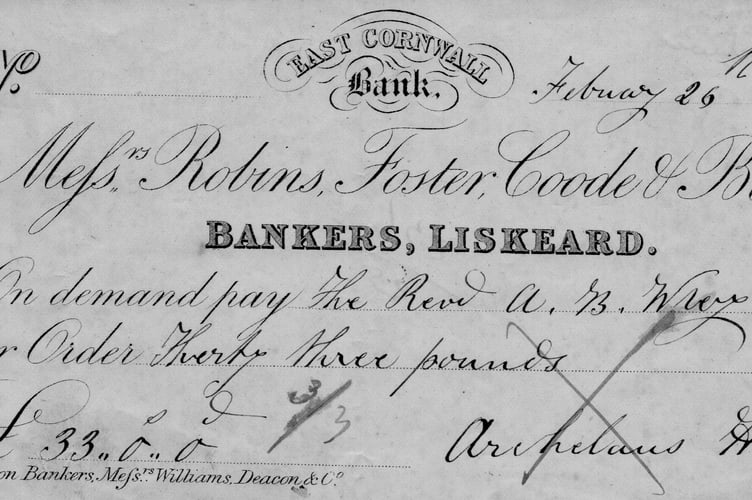 No.
EAST CORNWALL
Bank.
Febuary 26
Messrs. Robins, Foster, Coode & B
BANKERS, LISKEARD.
On demand pay The Revd A. B.
r Order Therty three pounds
3/3
£ 33,, 0s,, 0d
Archelaus
on Bankers, Messrs. Williams, Deacon, & Co.